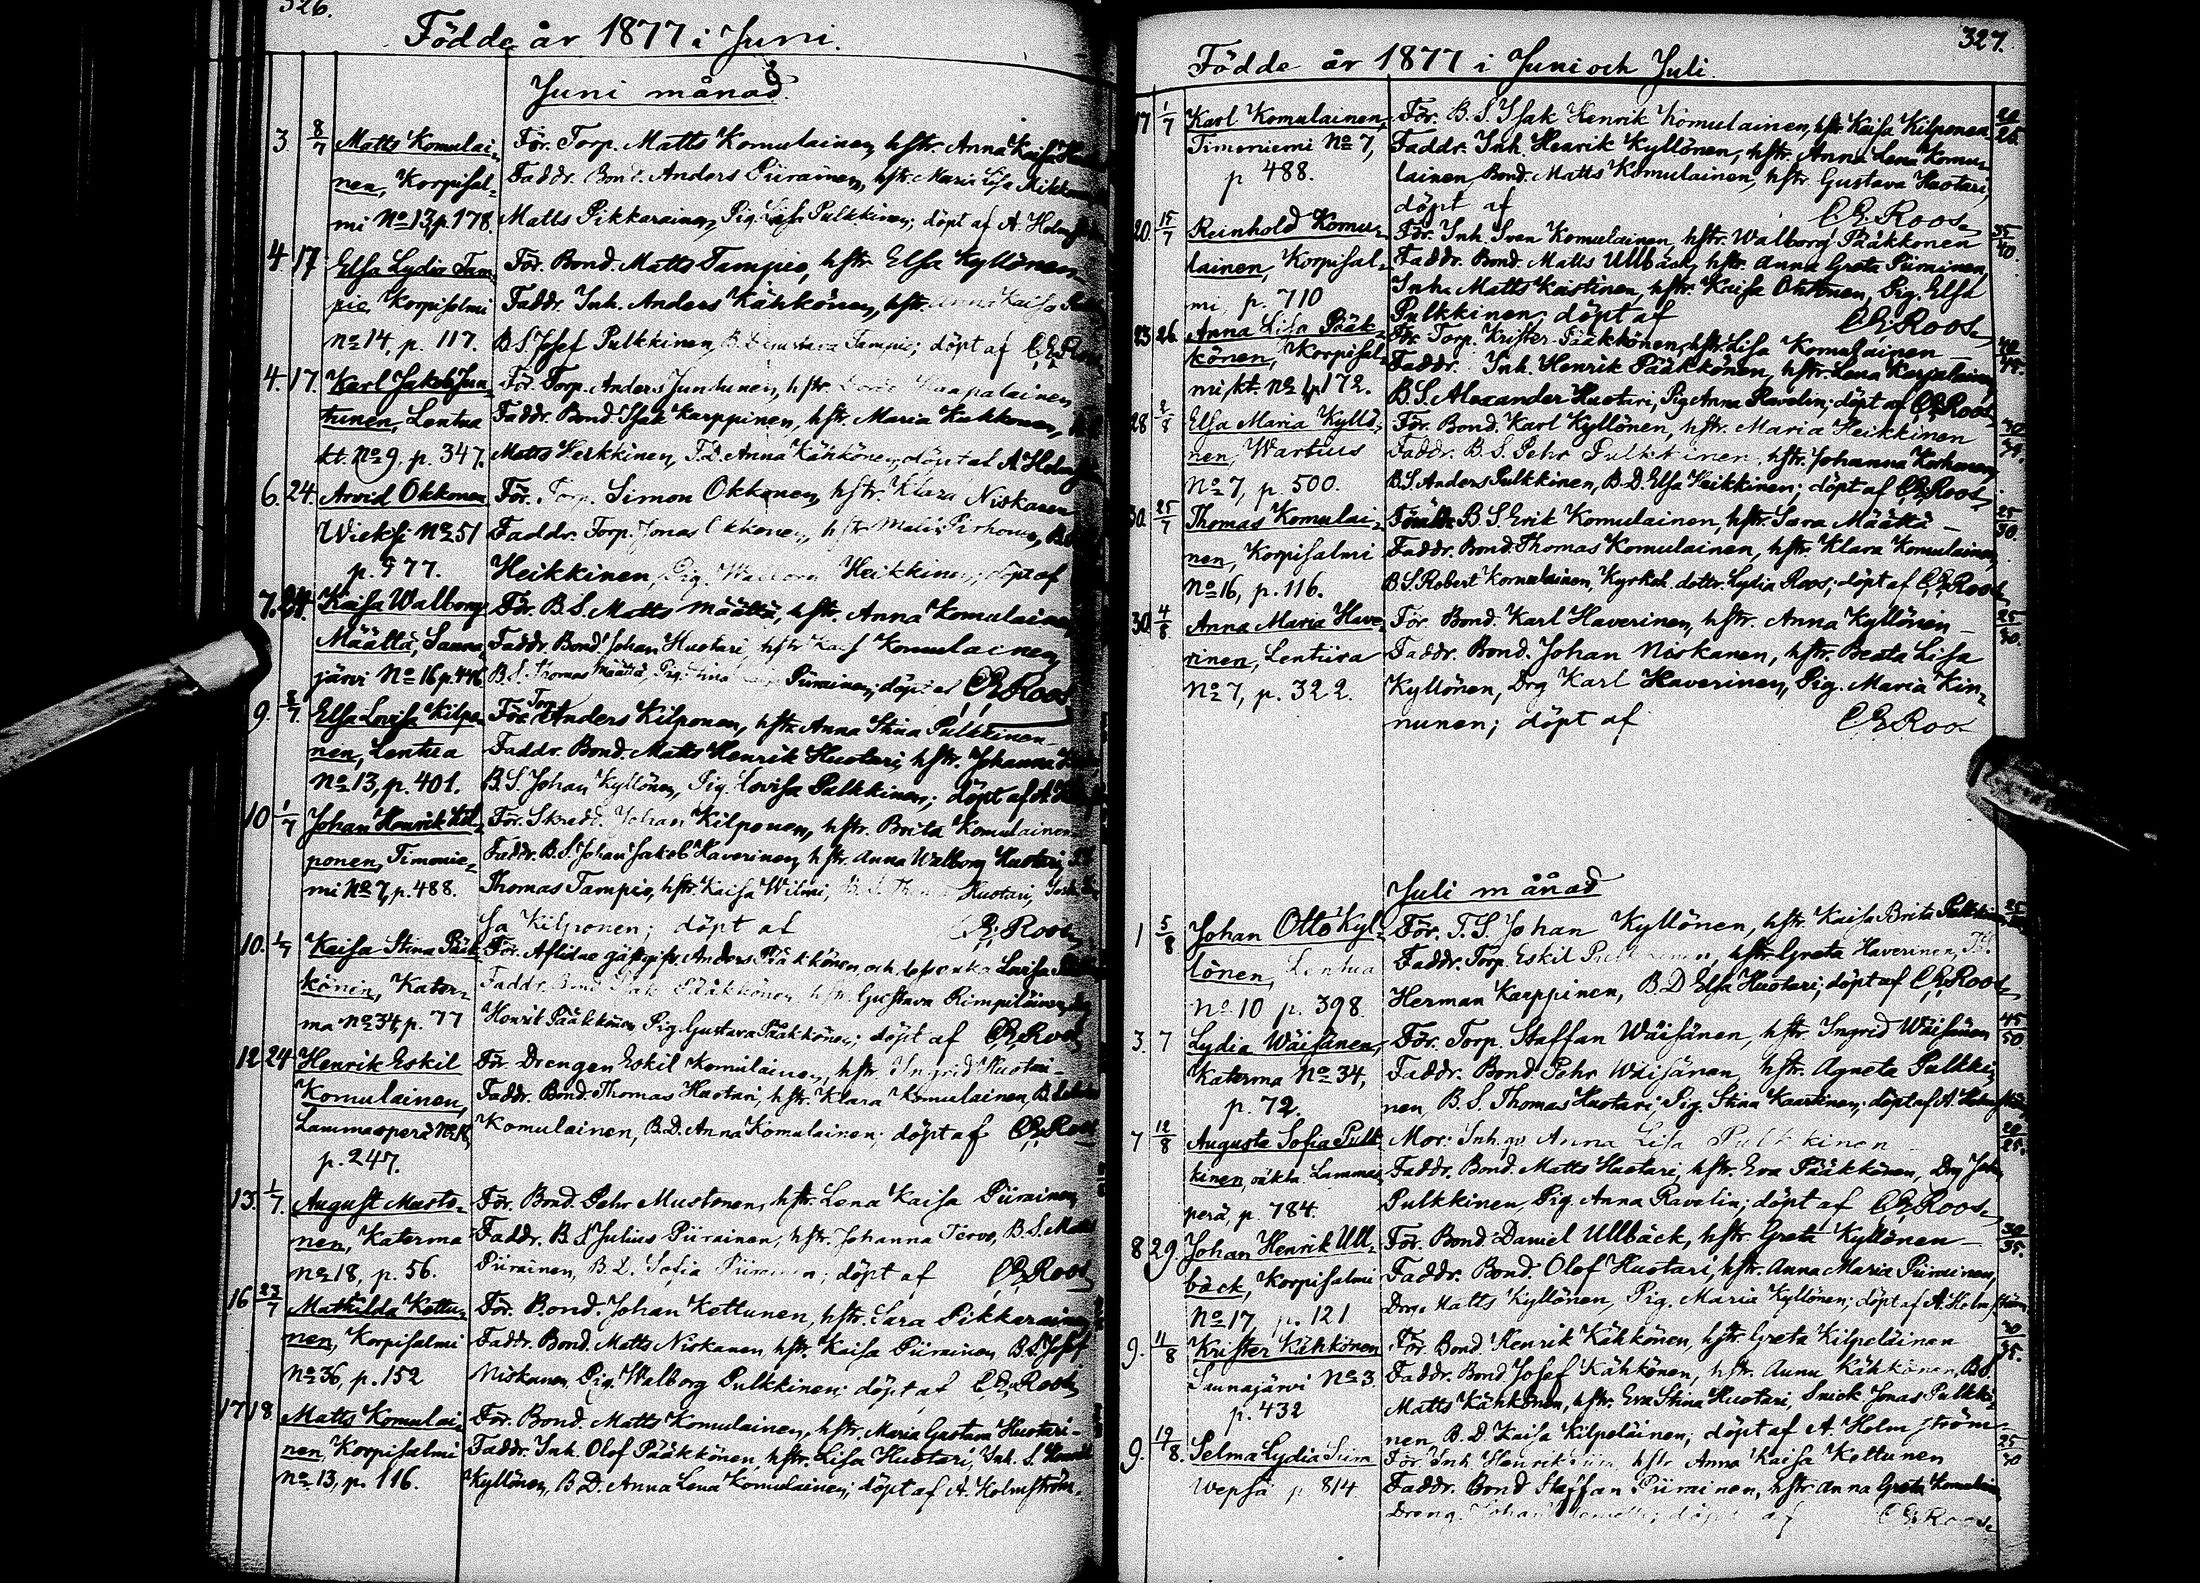 326.
Födde år 1877 i Juni.
Juni månad.
3. 8/7 Matts Komulai- För. Torp. Matts Komulainen, hstr. Anna Kaisa
nen, Korpisal- Faddr. Bond. Anders Piirainen, hstr. Maria Lisa
mi No 13, p. 178. Matts Pikkarainen, Pig. Lisa Pulkkinen; döpt af A. Holmström
4 17 Elsa Lydia Tam- För. Bond. Matts Tampio, hstr. Elsa Kyllönen
pio, Korpisalmi Faddr. Inh. Anders Kähkönen, hstr. Anna Kaisa
No 14, p. 117. B.S. Josef Pulkkinen, B.D. Gustava Tampio; döpt af C.E. Roos
4. 17. Karl Jakob Jun- För. Torp. Anders Juntunen, hstr. Haapalainen
tunen, Lentua Faddr. Bond. Isak Karppinen, hstr. Maria Kakkonen,
kt. No 9, p. 347. Matts Heikkinen, T.D. Anna Kähkönen, döpt af A. Holmström
6. 24. Arvid Okkonen För. Torp. Simon Okkonen, hstr. Klara Niskanen
Wieksi No 51 Faddr. Torp. Jonas Okkonen, hstr.
p. 577. Heikkinen, Pig. Walborg Heikkinen; döpt af
7. 24. Kaisa Walborg För. B.S. Matts Määttä, hstr. Anna Komulainen
Määttä, Sauna- Faddr. Bond. Johan Huotari, hstr. Kaisa Komulainen,
järvi No 16 p. 446 B.S. Thomas Määttä, Pig. Stina Piirainen; döpt af C.E. Roos
9. 8/7. Elsa Lovisa Kilpo- För. Torp. Anders Kilponen, hstr. Anna Stina Pulkkinen
nen, Lentua Faddr. Bond. Matts Henrik Huotari, hstr. Johanna
No 13, p. 401. B.S. Johan Kyllönen, Pig. Lovisa Pulkkinen; döpt af A.
10 1/7 Johan Henrik Kil- För. Skradd. Johan Kilponen, hstr. Brita Komulainen
ponen, Timonie- Faddr. B.S. Johan Jakob Haverinen, hstr. Anna Walborg Huotari,
mi No 7, p. 488. Thomas Tampio, hstr. Kaisa Wilmi, Huotari,
sa Kilponen; döpt af C.E. Roos
10. 1/7 Kaisa Stina Pääk- För. Aflidne gästgifv. Anders Pääkkönen och dess enka Lovisa
könen, Kater- Faddr. Bond. Isak Pääkkönen, hstr. Gustava Rimpiläinen,
ma No 34, p. 77 Henrik Pääkkönen, Pig. Gustava Pääkkönen; döpt af C.E. Roos
12 24 Henrik Eskil För. Drengen Eskil Komulainen, hstr. Ingrid Huotari
Komulainen, Faddr. Bond. Thomas Huotari, hstr. Klara Komulainen,
Lammasperä No 18, Komulainen, B.D. Anna Komulainen; döpt af C.E. Roos
p. 247.
13. 1/7. August Musto- För. Bond. Pehr Mustonen, hstr. Lena Kaisa Piirainen
nen, Katerma Faddr. B.S. Julius Piirainen, hstr. Johanna Tervo, B.S. Matts
No 18, p. 56. Piirainen, B.D. Sofia Piirainen; döpt af C.E. Roos
16 23/7 Mathilda Kettu- För. Bond. Johan Kettunen, hstr. Sara Pikkarainen
nen, Korpisalmi Faddr. Bond. Matts Niskanen, hstr. Kaisa Piirainen, B.S. Josef
No 36, p. 152 Niskanen, Pig. Walborg Pulkkinen; döpt af C.E. Roos
17 18 Matts Komulai- För. Bond. Matts Komulainen, hstr. Maria Gustava Huotari
nen, Korpisalmi Faddr. Inh. Olof Pääkkönen, hstr. Lisa Huotari, Inh. S.
No 13, p. 116. Kyllönen, B.D. Anna Lena Komulainen; döpt af A. Holmström.
327.
Födde år 1877 i Juni och Juli.
17 1/7 Karl Komulainen, För. B.S. Isak Henrik Komulainen, hstr. Kaisa Kilponen 20/25
Timoniemi No 7, Faddr. Inh. Henrik Kyllönen, hstr. Anna Lena Komu-
p 488. lainen, Bond. Matts Komulainen, hstr. Gustava Huotari,
döpt af C.E. Roos
20. 15/7 Reinhold Komu- För. Inh. Sven Komulainen, hstr. Walborg Pääkkönen 35/40.
lainen, Korpisal- Faddr. Bond. Matts Ullbäck, hstr. Anna Greta Piirainen,
mi, p. 710 Inh. Matts Kastinen, hstr. Kaisa Ohtonen, Pig. Elsa
Pulkkinen; döpt af C.E. Roos
23 26. Anna Lisa Pääk- För. Torp. Krister Pääkkönen, hstr. Lisa Komulainen 40/45.
könen, Korpisal- Faddr. Inh. Henrik Pääkkönen, hstr. Lena Karjalainen,
mi, kt. No 1, p 172. B.S. Alexander Huotari, Pig. Anna Ravelin; döpt af C.E. Roos
28 5/8 Elsa Maria Kyllö- För. Bond. Karl Kyllönen, hstr. Maria Heikkinen 30/35.
nen, Wartius Faddr. B.S. Pehr Pulkkinen, hstr. Johanna Korhonen,
No 7, p. 500. B.S. Anders Pulkkinen, B.D. Elsa Heikkinen; döpt af C.E. Roos
30. 25/7 Thomas Komulai- Föräldr. B.S. Erik Komulainen, hstr. Sara Määttä 25/30.
nen, Korpisalmi Faddr. Bond. Thomas Komulainen, hstr. Klara Komulainen,
No 16, p. 116. B.S. Robert Komulainen, Kyrkoh. dottr. Lydia Roos; döpt af C.E. Roos
30. 4/8 Anna Maria Have- För. Bond. Karl Haverinen, hstr. Anna Kyllönen 25/30.
rinen, Lentiira Faddr. Bond. Johan Niskanen, hstr. Beata Lisa
No 7, p. 322. Kyllönen, Drg Karl Haverinen, Pig. Maria Kin-
nunen; döpt af C.E. Roos
Juli månad
1 5/8 Johan Otto Kyl- För. T.S. Johan Kyllönen, hstr. Kaisa Brita Pulkkinen
lönen, Lentua Faddr. Torp. Eskil Pulkkinen, hstr. Greta Haverinen, T.S.
No 10 p. 398. Herman Karppinen, B.D. Elsa Huotari; döpt af C.E. Roos
3. 7 Lydia Wäisänen, För. Torp. Staffan Wäisänen, hstr. Ingrid Wäisänen 45/50.
Katerma No 34, Faddr. Bond. Pehr Wäisänen, hstr. Agneta Pulkki-
p. 72. nen, B.S. Thomas Huotari, Pig. Stina Kaartinen; döpt af A. Holmström
7 12/8 Augusta Sofia Pulk- Mor: Inh. qv. Anna Lisa Pulkkinen 20/25.
kinen, oäkta, Lammas- Faddr. Bond. Matts Huotari, hstr. Eva Pääkkönen, Drg Joh.
perä, p. 784. Pulkkinen, Pig. Anna Ravelin; döpt af C.E. Roos
8 29. Johan Henrik Ull- För. Bond. Daniel Ullbäck, hstr. Greta Kyllönen 30/35.
bäck, Korpisalmi Faddr. Bond. Olof Huotari, hstr. Anna Maria Piirainen,
No 17, p. 121 Drg. Matts Kyllönen, Pig. Maria Kyllönen; döpt af A. Holmström
9. 11/8 Krister Kähkönen För. Bond. Henrik Kähkönen, hstr. Greta Kilpeläinen 30/35.
Saunajärvi No 3. Faddr. Bond. Josef Kähkönen, hstr. Anna Kähkönen, B.S.
p. 432 Matts Kähkönen, hstr. Eva Stina Huotari, Snick. Jonas Pulkki-
nen, B.D. Kaisa Kilpeläinen; döpt af A. Holmström
9. 19/8. Selma Lydia Siira För. Inh. Henrik Siira, hstr. Anna Kaisa Kettunen 25/30
Wepsä p 814 Faddr. Bond. Staffan Piirainen, hstr. Anna Greta Komulainen
Dreng. Johan döpt af C.E. Roos